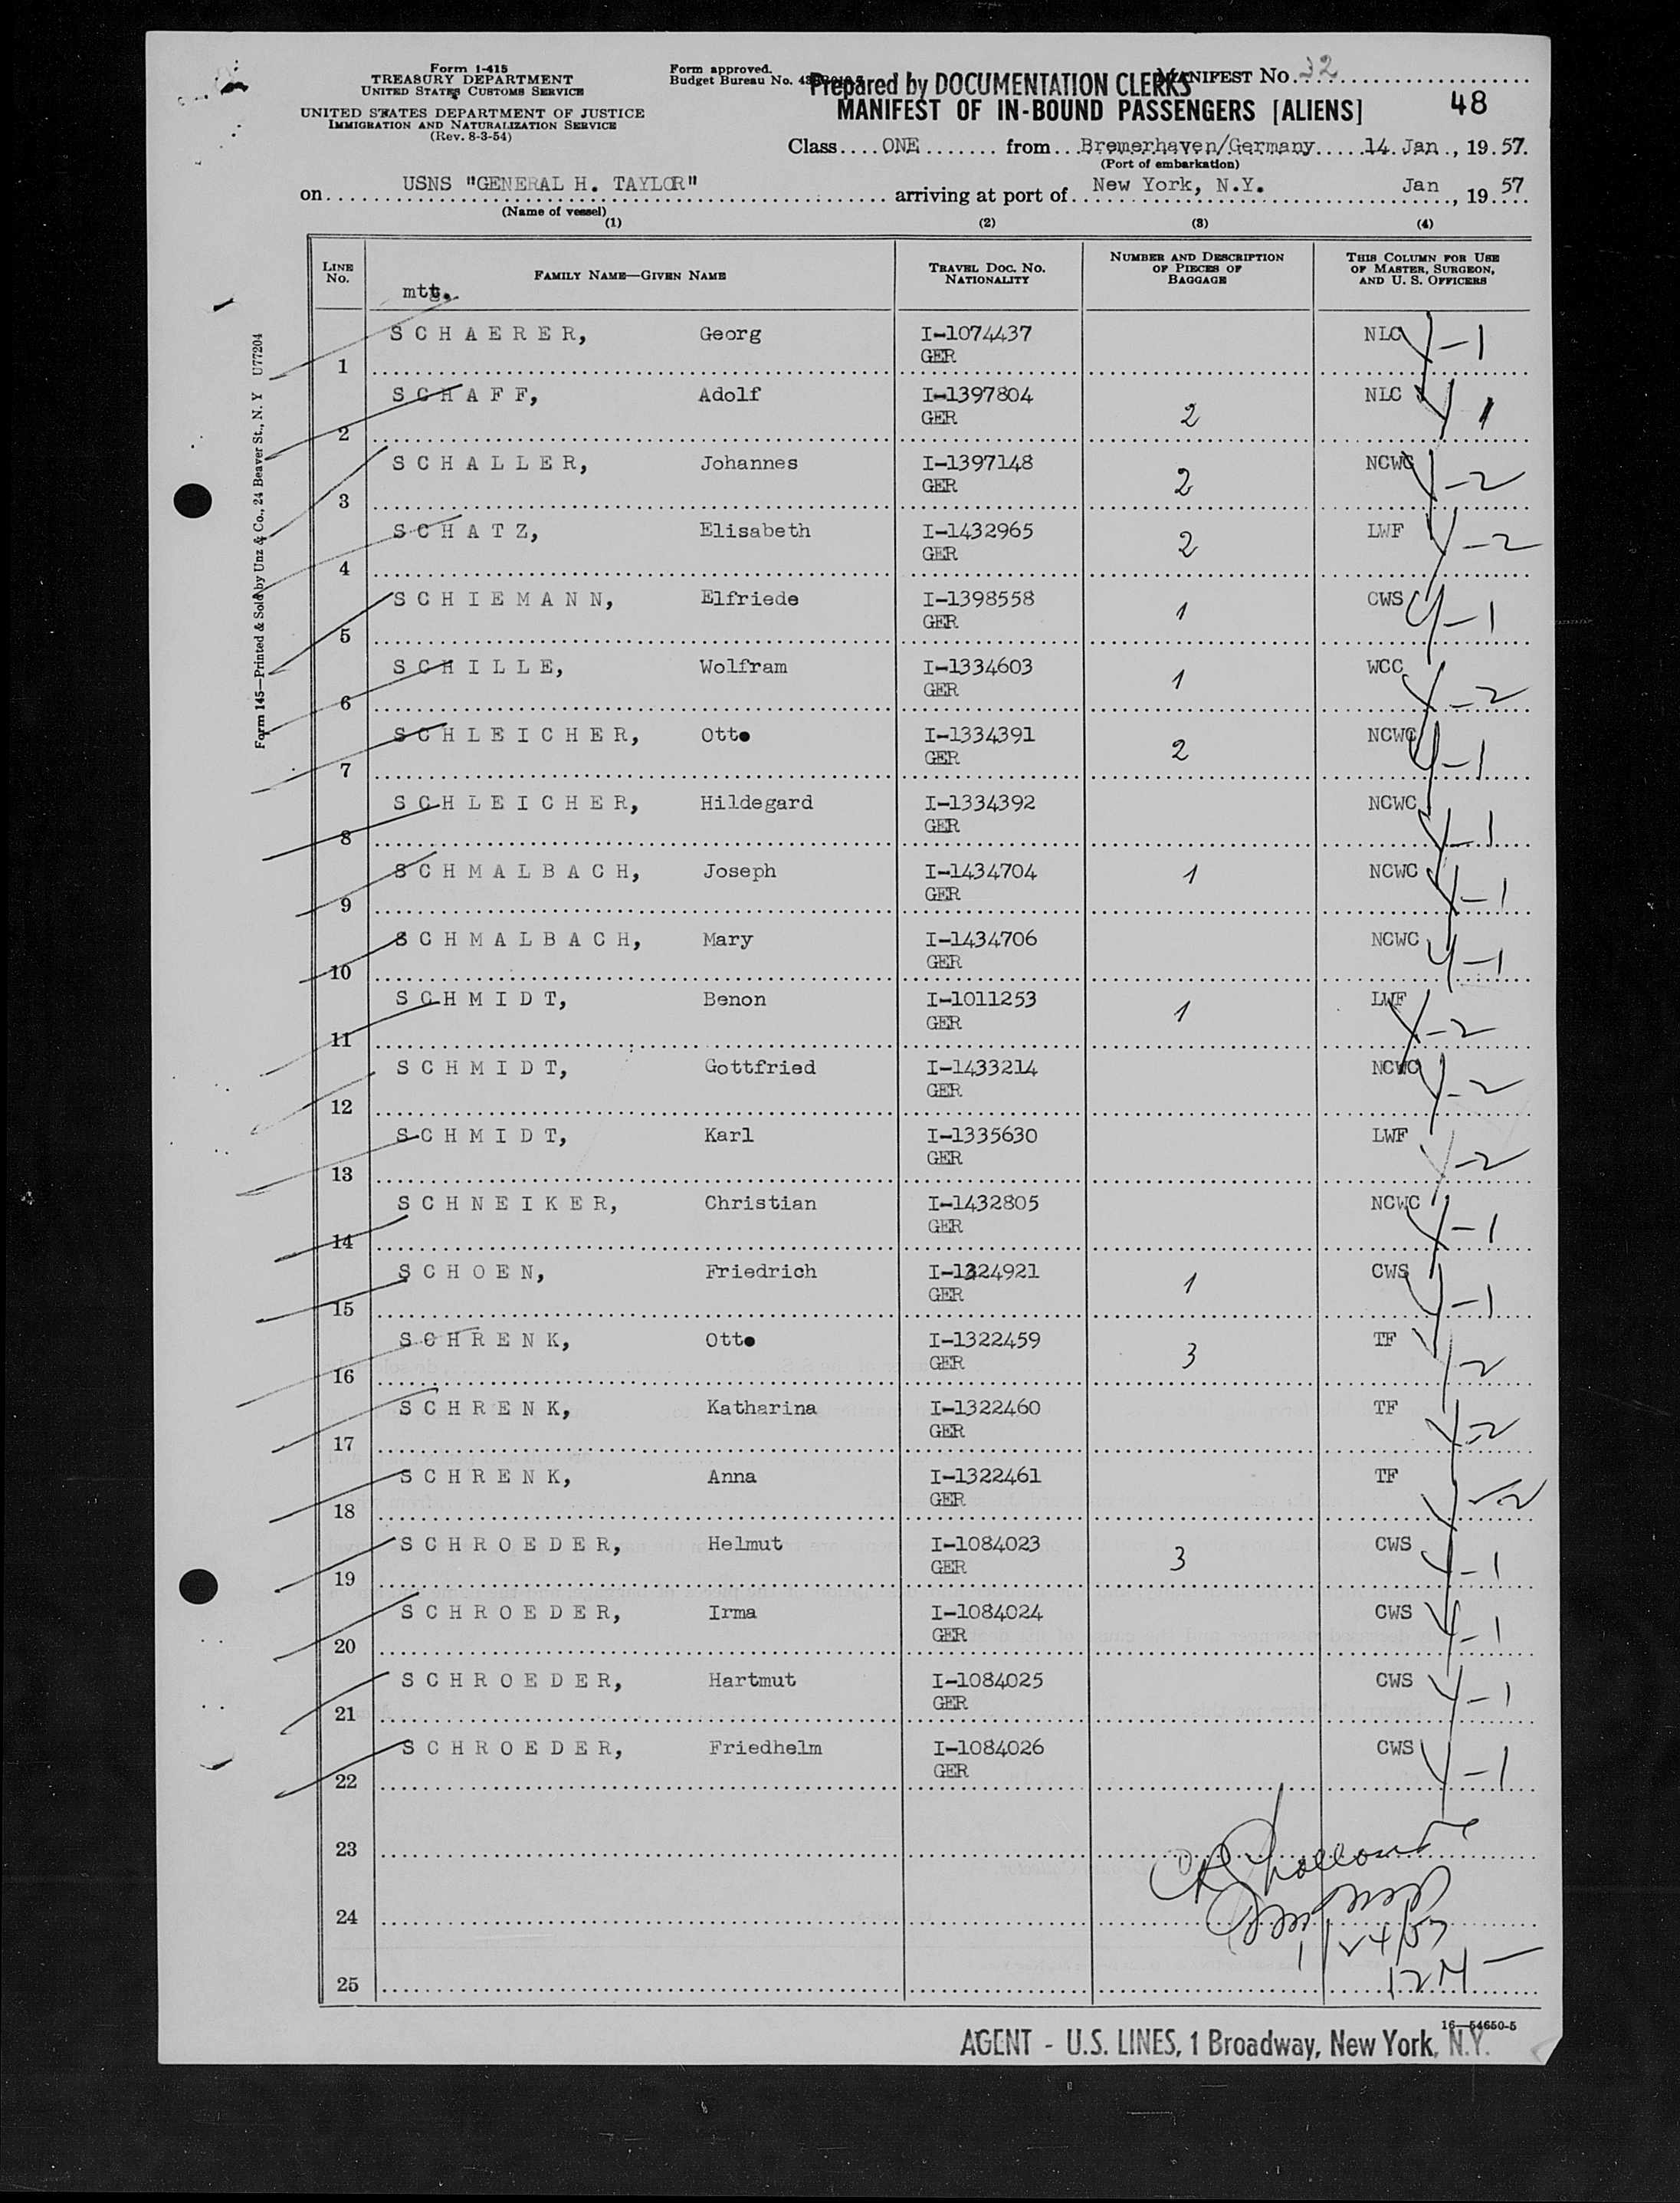 Form I-415
TREASURY DEPARTMENT
UNITED STATES CUSTOMS SERVICE
UNITED STATES DEPARTMENT OF JUSTICE
IMMIGRATION AND NATURALIZATION SERVICE
(Rev. 8-3-54)
Form approved.
Budget Bureau No.
Prepared by DOCUMENTATION CLERKS
MANIFEST No. 32
MANIFEST OF IN-BOUND PASSENGERS [ALIENS]
48
Class ONE from Bremerhaven/Germany 14. Jan , 19 57.
(Port of embarkation)
on USNS "GENERAL H. TAYLOR" arriving at port of New York, N.Y. Jan , 19 57
(Name of vessel)
(1) (2) (3) (4)
LINE No. FAMILY NAME—GIVEN NAME TRAVEL DOC. NO. NATIONALITY NUMBER AND DESCRIPTION OF PIECES OF BAGGAGE THIS COLUMN FOR USE OF MASTER, SURGEON, AND U. S. OFFICERS
mtg.
1 SCHAERER, Georg I-1074437 GER NLC -1
2 SCHAFF, Adolf I-1397804 GER 2 NLC 1
3 SCHALLER, Johannes I-1397148 GER 2 NCWC -2
4 SCHATZ, Elisabeth I-1432965 GER 2 LWF -2
5 SCHIEMANN, Elfriede I-1398558 GER 1 CWS -1
6 SCHILLE, Wolfram I-1334603 GER 1 WCC -2
7 SCHLEICHER, Otto I-1334391 GER 2 NCWC -1
8 SCHLEICHER, Hildegard I-1334392 GER NCWC -1
9 SCHMALBACH, Joseph I-1434704 GER 1 NCWC -1
10 SCHMALBACH, Mary I-1434706 GER NCWC -1
11 SCHMIDT, Benon I-1011253 GER 1 LWF -2
12 SCHMIDT, Gottfried I-1433214 GER NCWC -2
13 SCHMIDT, Karl I-1335630 GER LWF -2
14 SCHNEIKER, Christian I-1432805 GER NCWC -1
15 SCHOEN, Friedrich I-1324921 GER 1 CWS -1
16 SCHRENK, Otto I-1322459 GER 3 TF -2
17 SCHRENK, Katharina I-1322460 GER TF -2
18 SCHRENK, Anna I-1322461 GER TF -2
19 SCHROEDER, Helmut I-1084023 GER 3 CWS -1
20 SCHROEDER, Irma I-1084024 GER CWS -1
21 SCHROEDER, Hartmut I-1084025 GER CWS -1
22 SCHROEDER, Friedhelm I-1084026 GER CWS -1
23
24
25
Form 145—Printed & Sold by Unz & Co., 24 Beaver St., N. Y U77204
16—54650-5
AGENT - U.S. LINES, 1 Broadway, New York, N.Y.